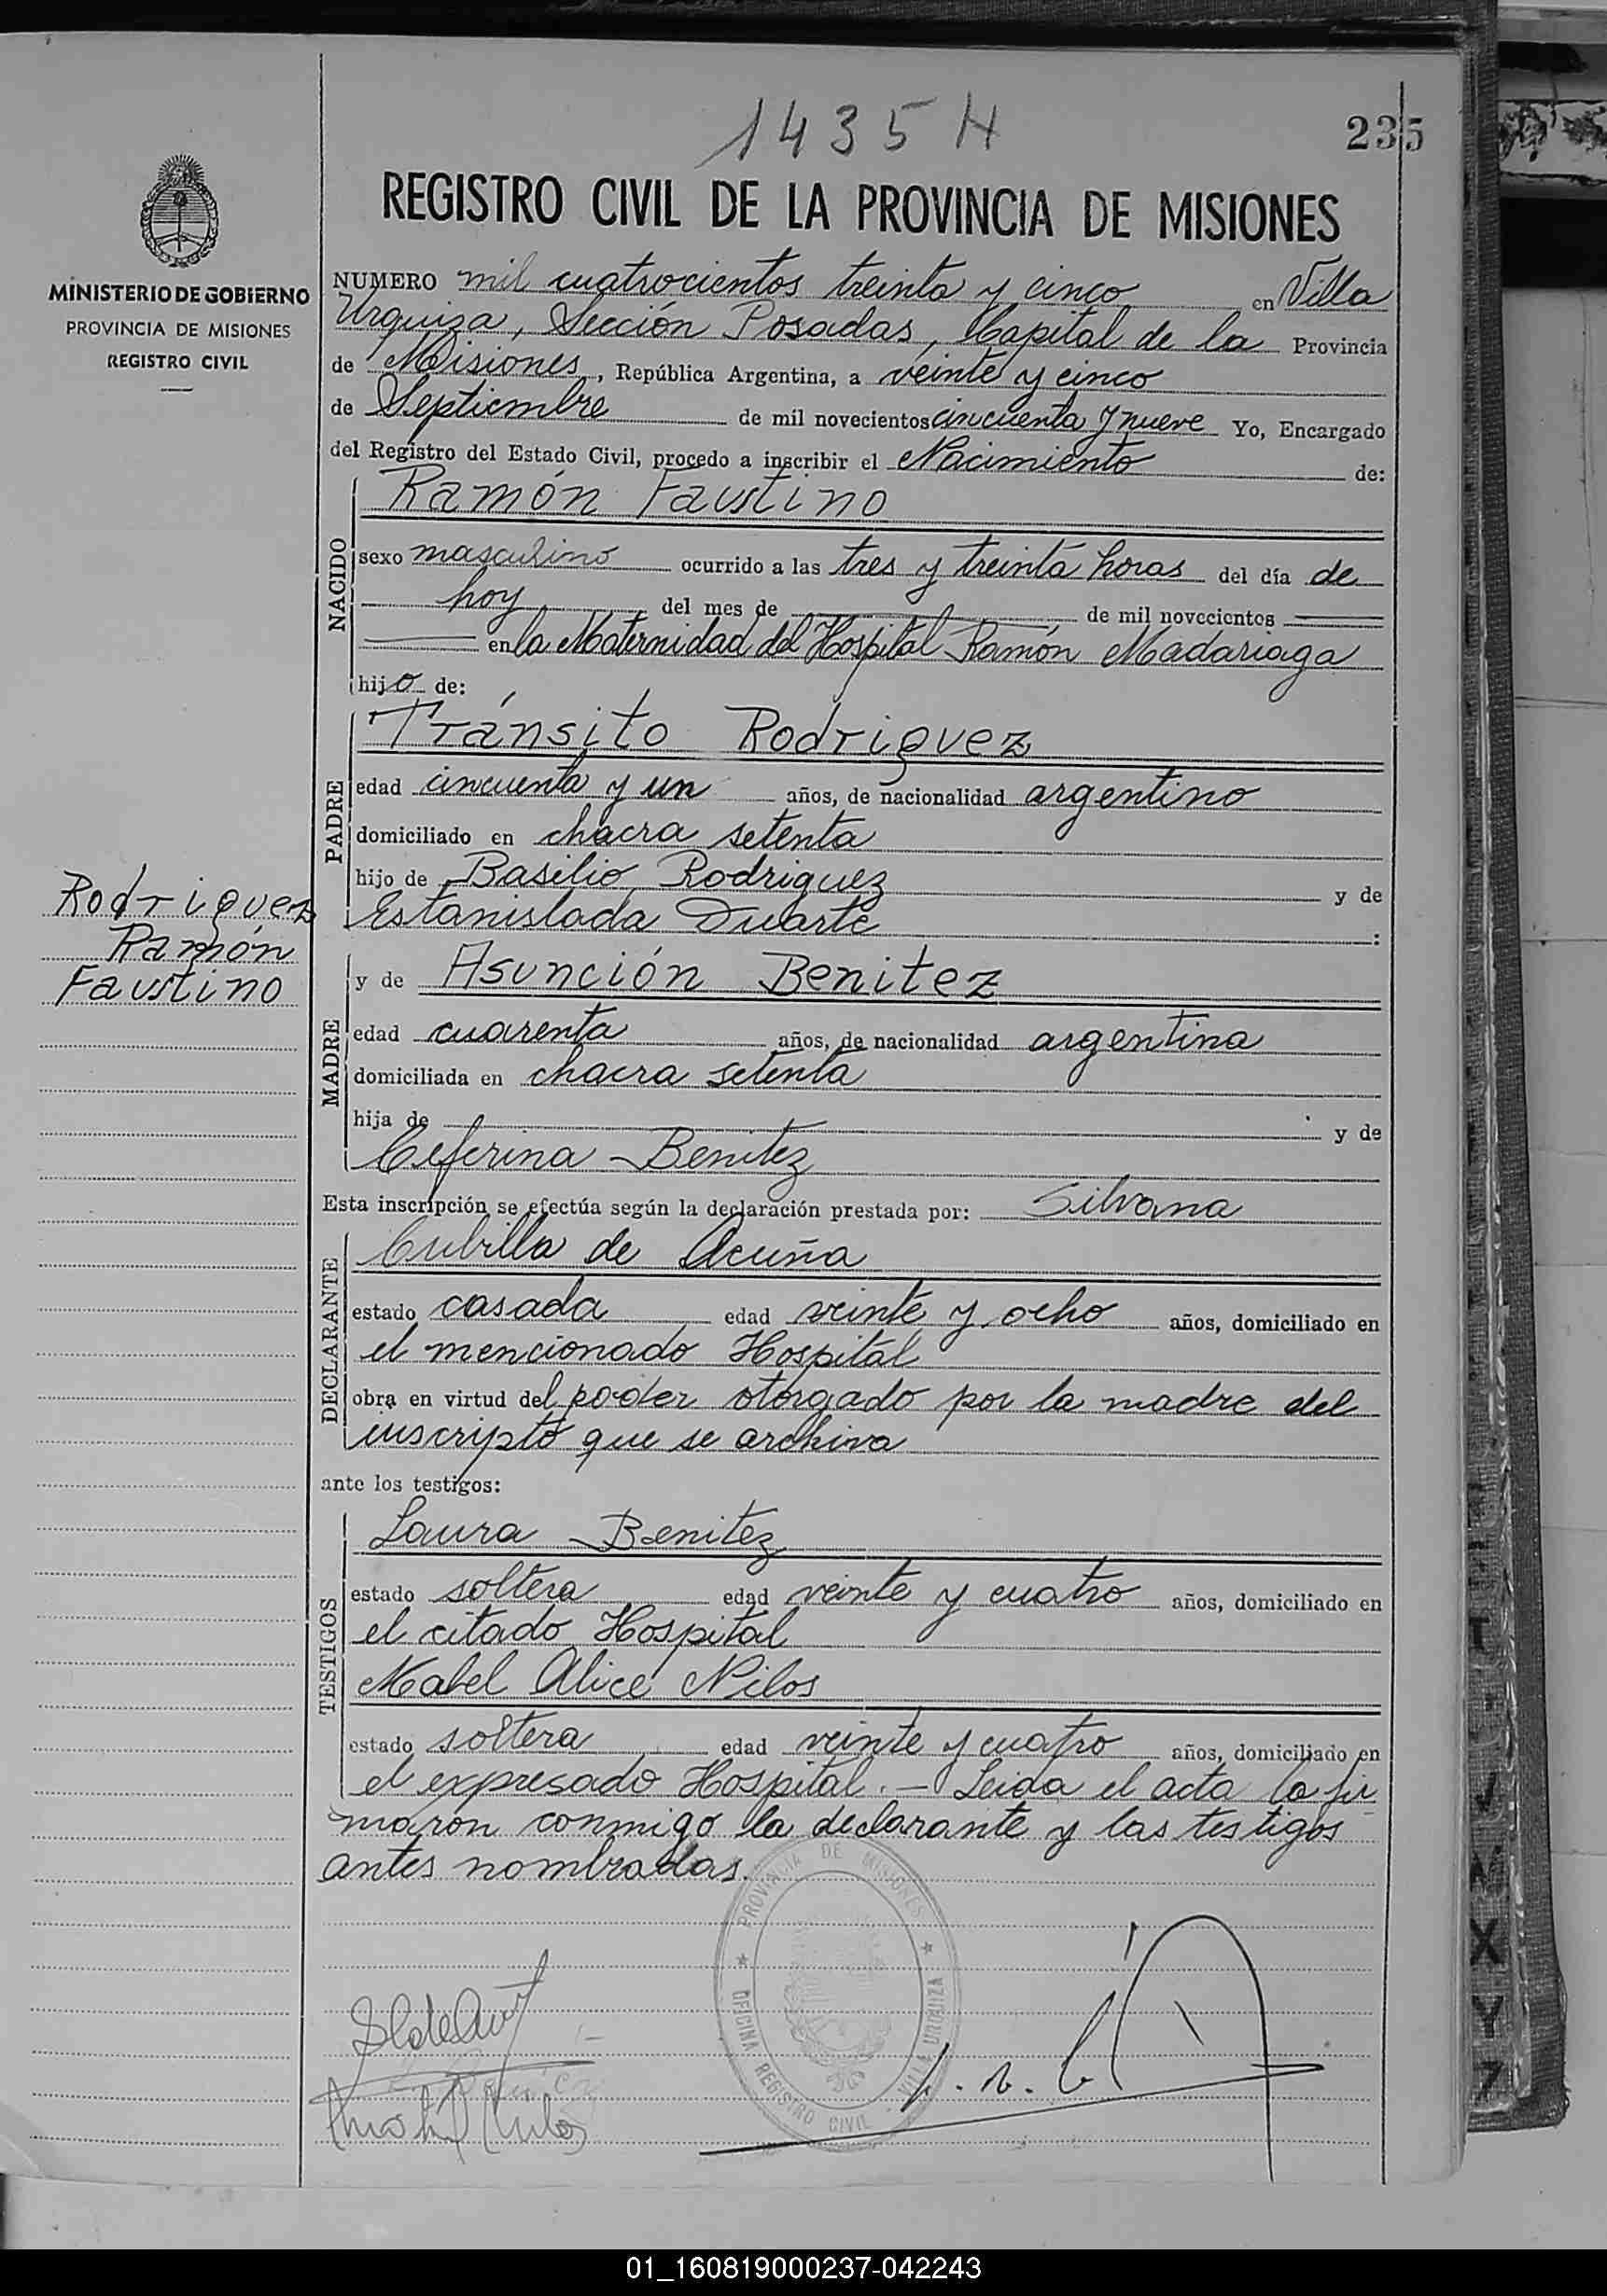 1435 H
235
REGISTRO CIVIL DE LA PROVINCIA DE MISIONES
MINISTERIO DE GOBIERNO
PROVINCIA DE MISIONES
REGISTRO CIVIL
NUMERO mil cuatrocientos treinta y cinco en Villa
Urquiza, Sección Posadas, Capital de la Provincia
de Misiones, República Argentina, a veinte y cinco
de Septiembre de mil novecientos cincuenta y nueve Yo, Encargado
del Registro del Estado Civil, procedo a inscribir el Nacimiento de:
NACIDO
Ramón Faustino
sexo masculino ocurrido a las tres y treinta horas del día de
hoy del mes de de mil novecientos
en la Maternidad del Hospital Ramón Madariaga
hijo de:
PADRE
Tránsito Rodriguez
edad cincuenta y un años, de nacionalidad argentino
domiciliado en chacra setenta
hijo de Basilio Rodriguez y de
Estanislada Duarte :
Rodriguez
Ramón
Faustino
MADRE
y de Asunción Benitez
edad cuarenta años, de nacionalidad argentina
domiciliada en chacra setenta
hija de y de
Ceferina Benitez
Esta inscripción se efectúa según la declaración prestada por: Silvana
DECLARANTE
Cubilla de Acuña
estado casada edad veinte y ocho años, domiciliado en
el mencionado Hospital
obra en virtud del poder otorgado por la madre del
inscripto que se archiva
ante los testigos:
TESTIGOS
Laura Benitez
estado soltera edad veinte y cuatro años, domiciliado en
el citado Hospital
Mabel Alice Nilos
estado soltera edad veinte y cuatro años, domiciliado en
el expresado Hospital.- Leida el acta la fir
maron conmigo la declarante y las testigos
antes nombradas.
PROVINCIA DE MISIONES
OFICINA REGISTRO CIVIL - VILLA URQUIZA
T
X
Y
Z
01_160819000237-042243